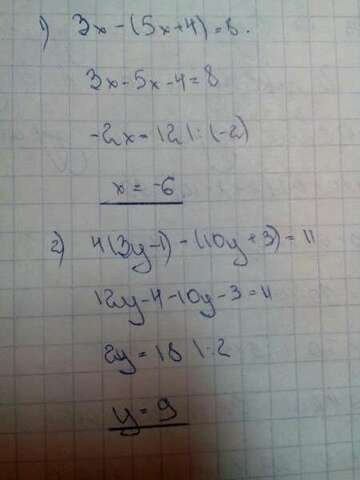 1) 3x-(5x+4)=8.
3x-5x-4=8
-2x=12 |:(-2)
x=-6
2) 4(3y-1)-(10y+3)=11
12y-4-10y-3=11
2y=18 |:2
y=9